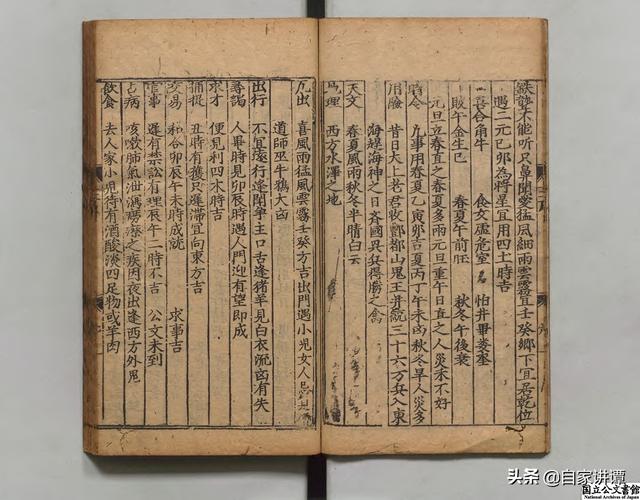 缺謢不能听只鼻聞愛猛風細雨雲霧宜壬癸鄉下宜居乾位
遇二元巳卯為將星宜用四土時吉
喜合角牛 食女虛危室 怕井畢婁奎
敗午金生巳 春夏午前旺 秋冬午後衰
元旦立春直之春夏多雨元旦重午日直之人災禾不好
時令 凡事用春夏乙寅卯吉夏丙丁午未凶秋冬旱人災多
用驗 昔日大上老君收酆都山鬼王并統三十六万兵入東
海繞海神之日吝國異兵得勝之禽
天文 春夏風雨秋冬半晴白云
地理 西方水澤之地
凡出 喜風雨猛風雲霧壬癸方吉出門遇小兒女人
道師巫牛鴉大凶
出行 不宜遠行逢閉爭主口舌逢猪羊見白衣流凶有失
尋謁 人畢時見卯辰時遇人門迎有望即成
求才 便見利四木時吉
捕捉 丑時有獲只遲滯宜向東方吉
交易 和合卯辰午未時成就 求事吉
官事 遲有禁訟有理辰午二時不吉 公文未到
占病 咳嗽肺氣泄瀉癆瘵之疾因夜出逢西方外鬼
飲食 去人家小兒待有酒酸淡四足物或羊肉
头条 @自家讲谭
国立公文書館
National Archives of Japan